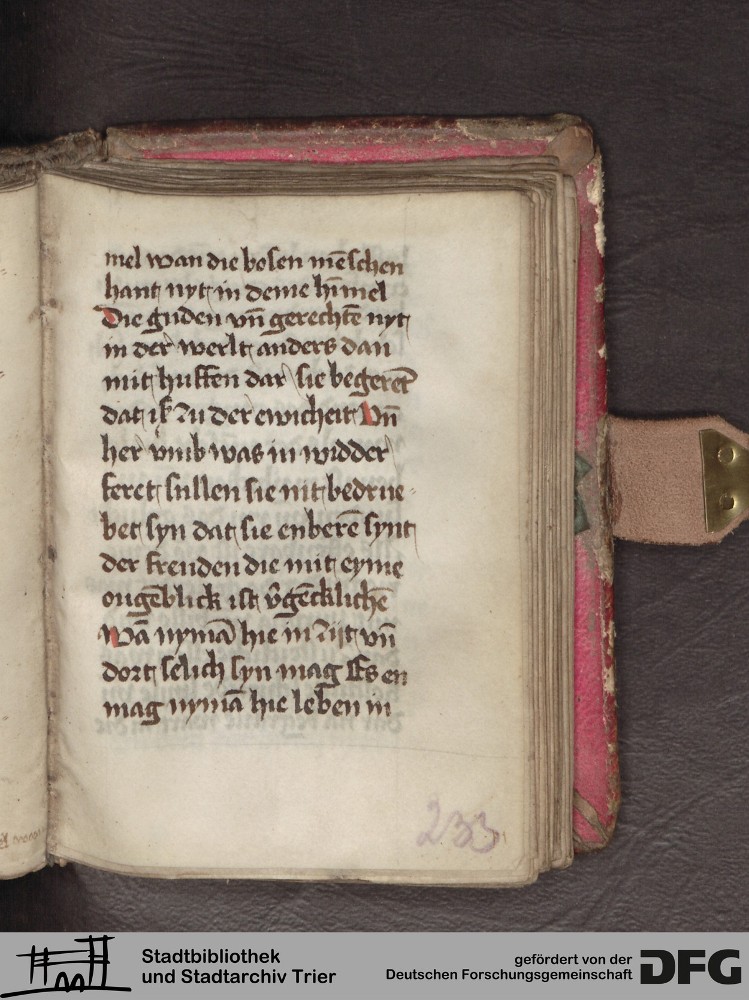 mel wan die bosen mēschen
hant nyt in deme hīmel
Die guden vn̄ gerechtē nyt
in der werlt anders dan
mit huffen dar sie begeret
dat is zu der ewicheit Vn̄
her vmb was in widder
feret sullen sie nit bedrue-
bet syn dat sie enberē synt
der freuden die mit eyme
ougēblick ist v̄gēcklichē
Wā nymā hie in zijt vn̄
dort selich syn mag Es en
mag nymā hie leben in
233
Stadtbibliothek
und Stadtarchiv Trier
gefördert von der
Deutschen Forschungsgemeinschaft
DFG